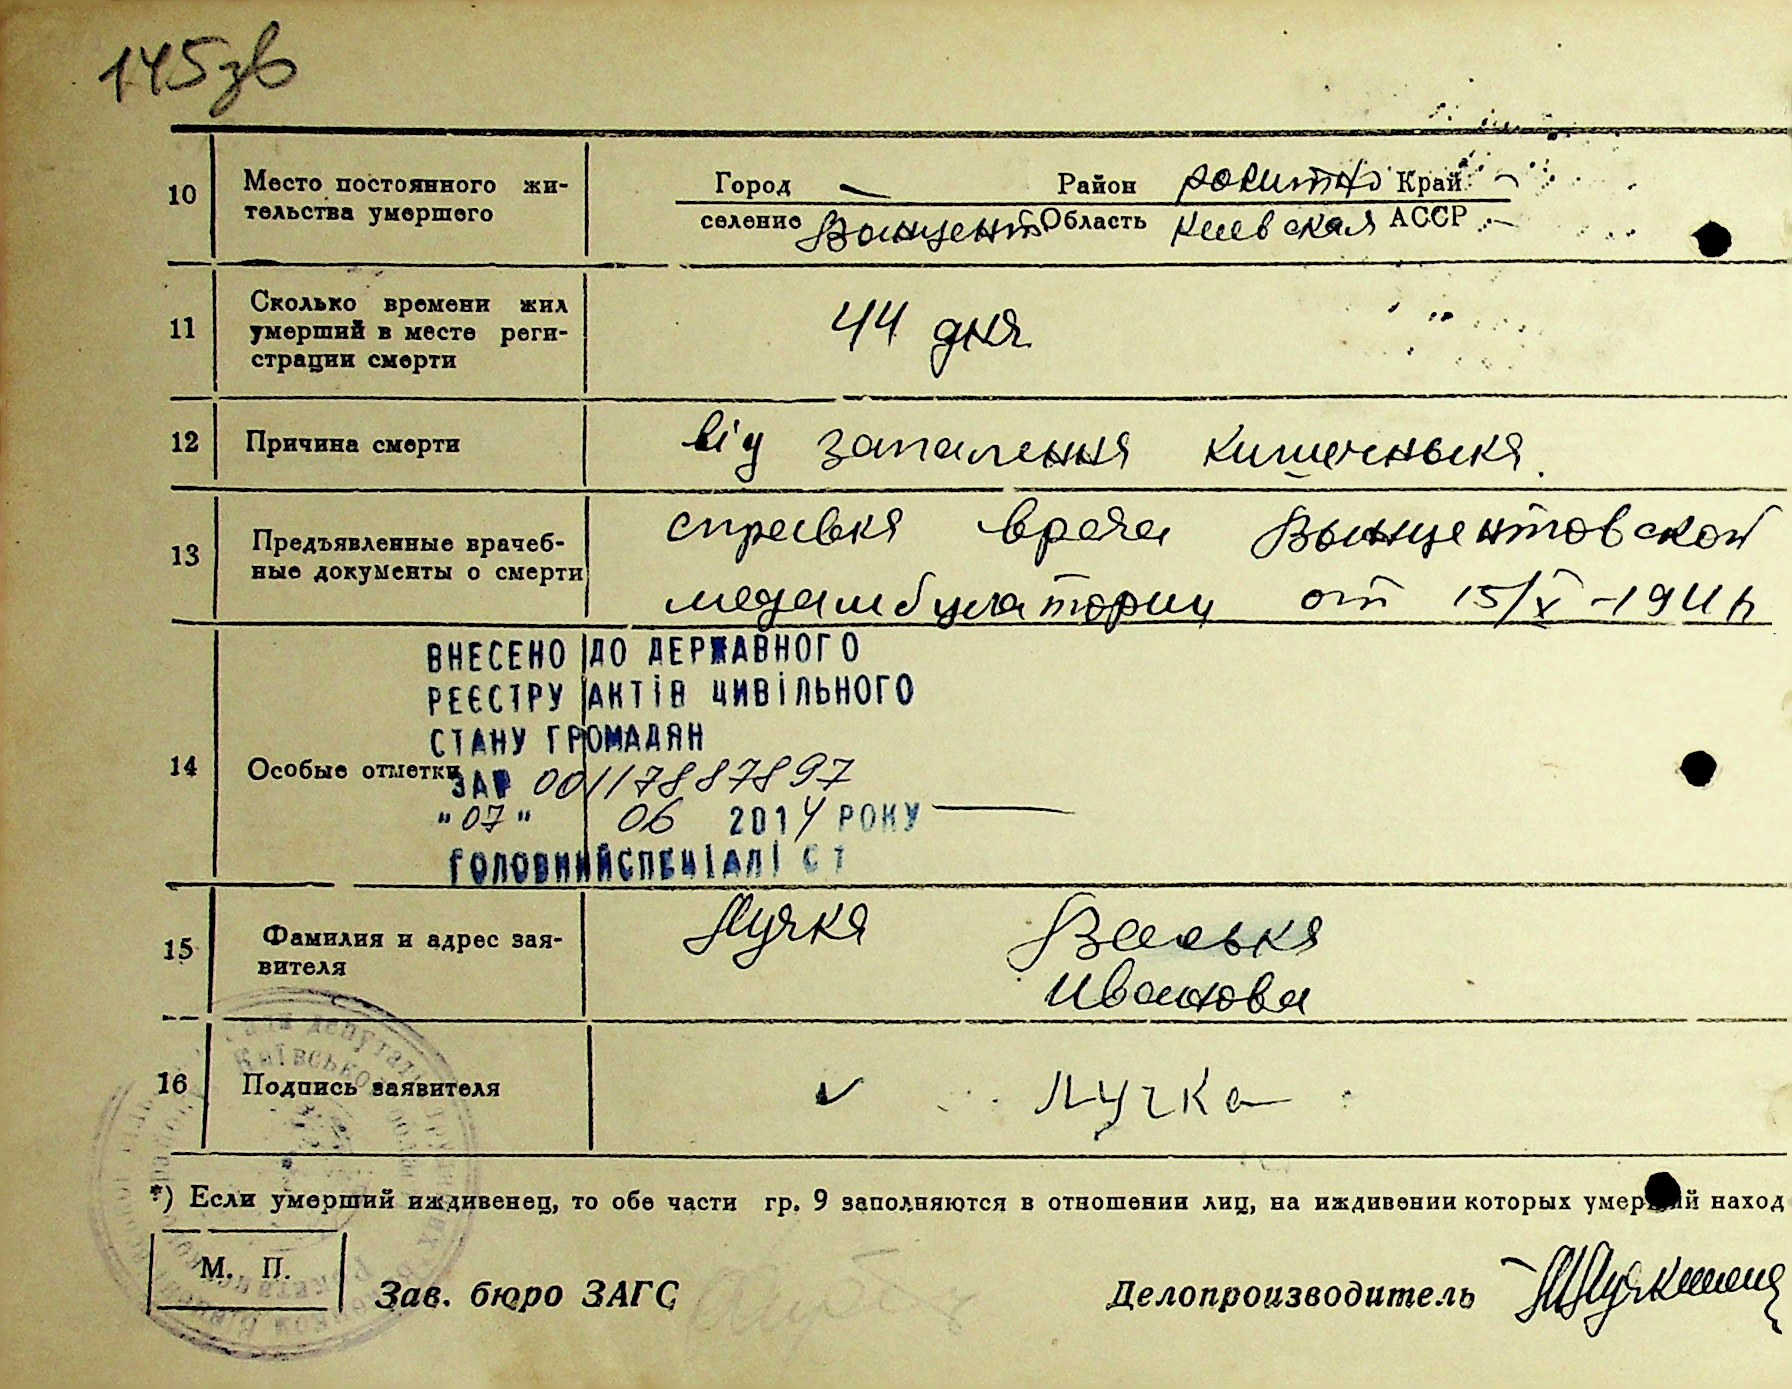 145зв
10 Место постоянного жи-
тельства умершого
Город — Район рокитно Край —
селение Винцент Область Киевская АССР —
11 Сколько времени жил
умерший в месте реги-
страции смерти
44 дня
12 Причина смерти від запалення кишечныка
13 Предъявленные врачеб-
ные документы о смерти
справка врача Винцентовской
медамбулатории от 15/X-1941 р
ВНЕСЕНО ДО ДЕРЖАВНОГО
РЕЄСТРУ АКТІВ ЦИВІЛЬНОГО
СТАНУ ГРОМАДЯН
14 Особые отметки
ЗА № 00117887897
"07" 06 2014 РОКУ
ГОЛОВНИЙ СПЕЦІАЛІСТ
15 Фамилия и адрес зая-
вителя
Лучка Васька
Иванова
16 Подпись заявителя Лучка
*) Если умерший иждивенец, то обе части гр. 9 заполняются в отношении лиц, на иждивении которых умерший наход
М. П.
Зав. бюро ЗАГС Делопроизводитель